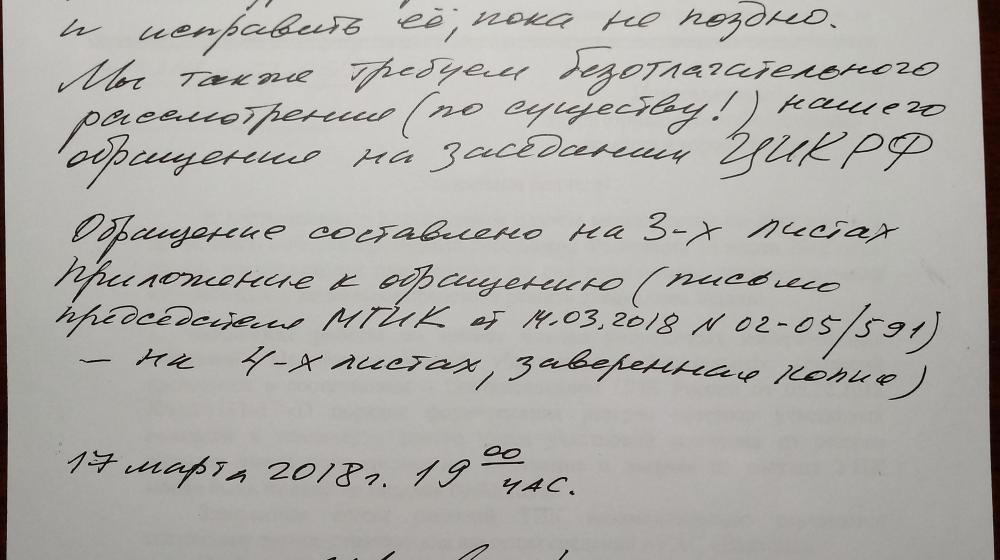 и исправить её, пока не поздно.
Мы также требуем безотлагательного
рассмотрения (по существу!) нашего
обращения на заседании ЦИК РФ
Обращение составлено на 3-х листах
Приложение к обращению (письмо
председателя МГИК от 14.03.2018 N 02-05/591)
— на 4-х листах, заверенная копия)
17 марта 2018г. 19 00 час.